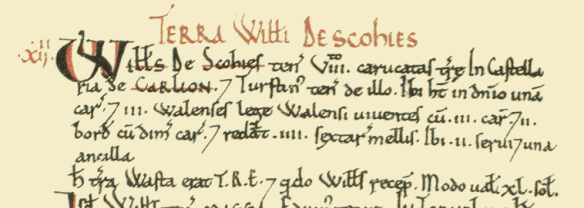 TERRA Willi DE SCOHIES
.XIIII. Wills De Scohies ten' VIII. carucatas t're In Castella
ria de CARLION. 7 Turstin' ten' de illo. Ibi ht in dnio unā
car'. 7 III. Walenses lege Walensi uiuentes cū .III. car' 7 II.
bord' cū dim' car'. 7 reddt' .IIII. sextar' mellis. Ibi .II. serui 7 una
ancilla
h t'ra Wasta erat T.R.E. 7 qdo Wills recep'. Modo ual' .XL. sol'.